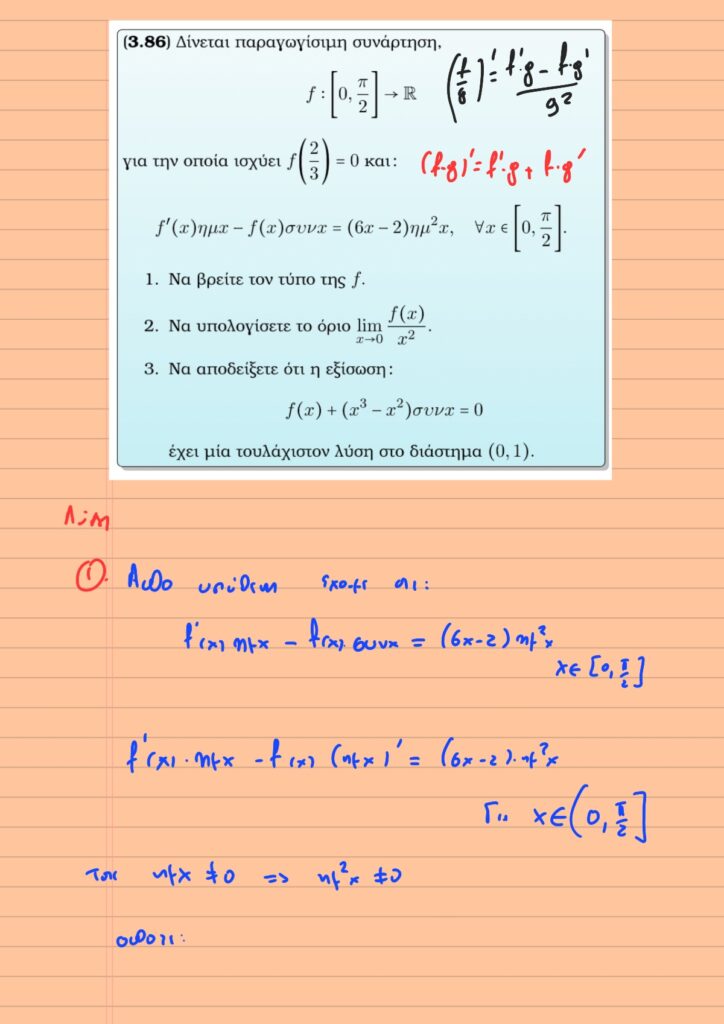 (3.86) Δίνεται παραγωγίσιμη συνάρτηση,
f : [0, π/2] → ℝ
(f/g)' = f'·g - f·g' / g²
για την οποία ισχύει f(2/3) = 0 και:
(f·g)' = f'·g + f·g'
f'(x)ημx − f(x)συνx = (6x − 2)ημ²x, ∀x ∈ [0, π/2].
1. Να βρείτε τον τύπο της f.
2. Να υπολογίσετε το όριο lim x→0 f(x)/x².
3. Να αποδείξετε ότι η εξίσωση:
f(x) + (x³ − x²)συνx = 0
έχει μία τουλάχιστον λύση στο διάστημα (0, 1).
Λύση
①. Από υπόθεση έχουμε οτι:
f'(x) ημx − f(x)·συνx = (6x-2) ημ²x
x∈[0, π/2]
f'(x)·ημx − f(x) (ημx)' = (6x-2)·ημ²x
Για x∈(0, π/2]
τοτε ημx ≠0 => ημ²x ≠0
οποτε: